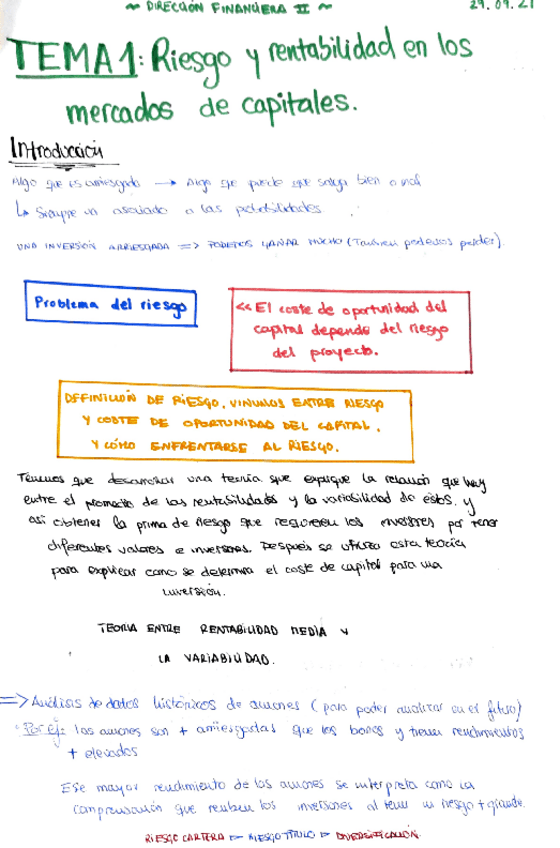 ~ DIRECCIÓN FINANCIERA II ~ 29.09.21
TEMA 1: Riesgo y rentabilidad en los
mercados de capitales.
Introducción
Algo que es arriesgado → Algo que puede que salga bien o mal
↳ Siempre va asociado a las probabilidades.
UNA INVERSIÓN ARRIESGADA => PODEMOS GANAR MUCHO (También podemos perder).
Problema del riesgo
<< El coste de oportunidad del
capital depende del riesgo
del proyecto.
DEFINICIÓN DE RIESGO, VINCULOS ENTRE RIESGO
Y COSTE DE OPORTUNIDAD DEL CAPITAL,
Y CÓMO ENFRENTARSE AL RIESGO.
Tenemos que desarrollar una teoría que explique la relación que hay
entre el promedio de las rentabilidades y la variabilidad de estos, y
así obtener la prima de riesgo que requieren los inversores por tener
diferentes valores e inversores. Después se utiliza esta teoría
para explicar como se determina el coste de capital para una
inversión.
TEORIA ENTRE RENTABILIDAD MEDIA Y
LA VARIABILIDAD.
=> Análisis de datos históricos de acciones (para poder analizar en el futuro)
· Por ej: las acciones son + arriesgadas que los bonos y tienen rendimientos
+ elevados
Ese mayor rendimiento de las acciones se interpreta como la
compensación que reciben los inversores al tener un riesgo + grande.
RIESGO CARTERA RIESGO TÍTULO DIVERSIFICACIÓN.